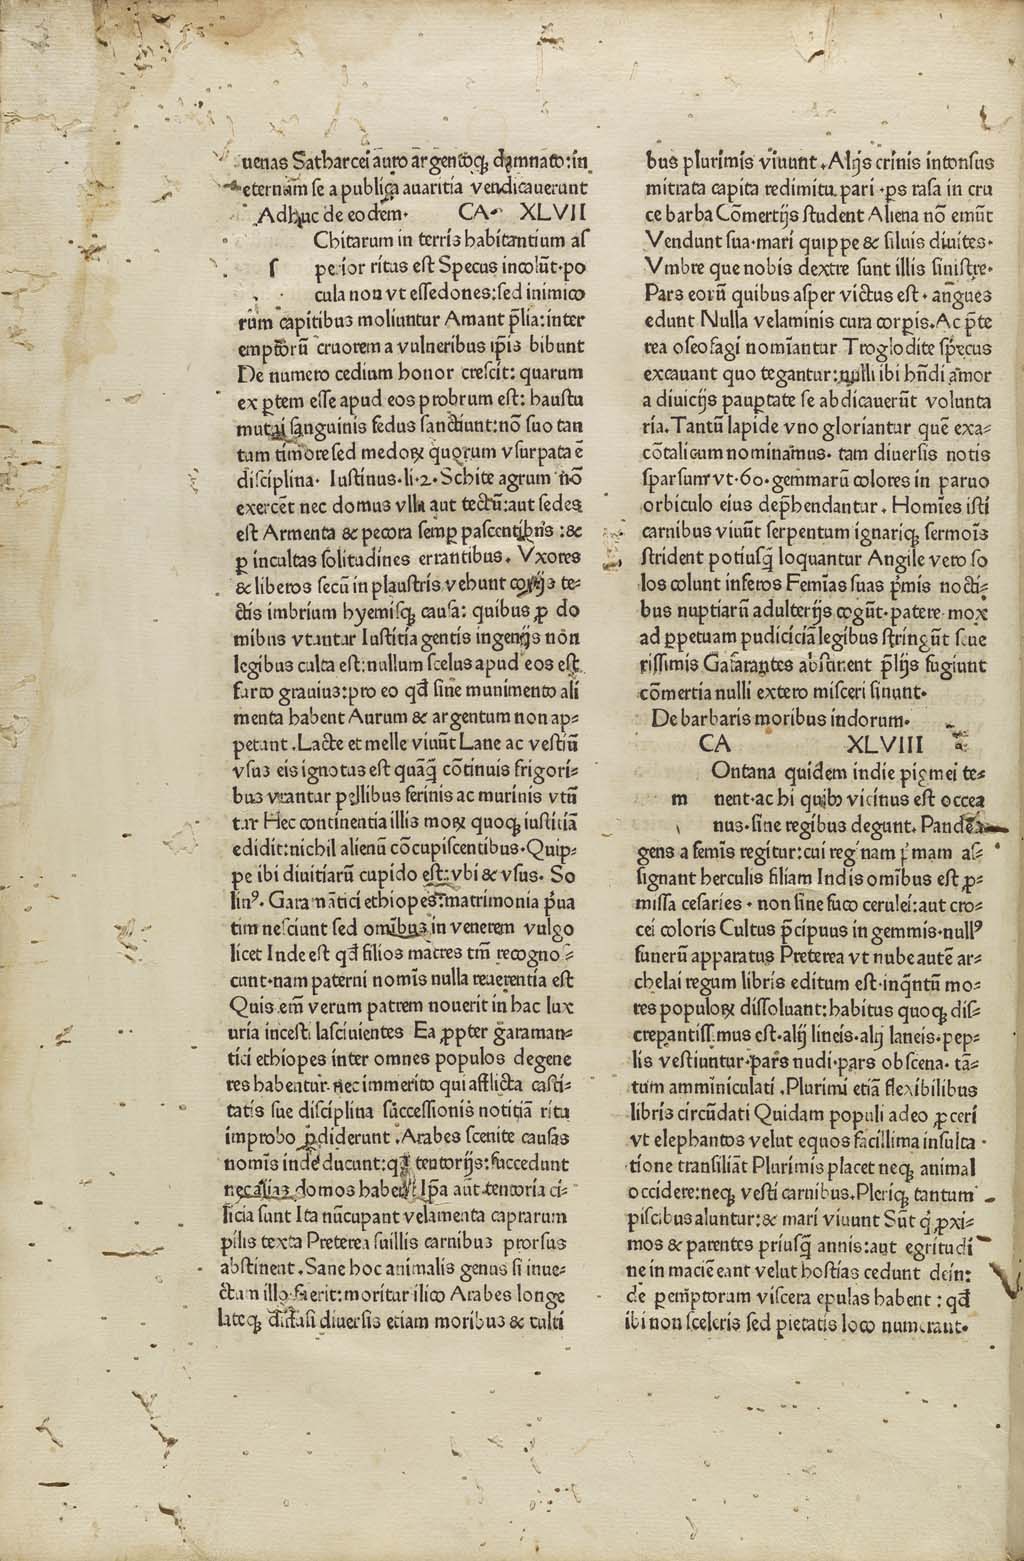 uenas Satharcei auro argentoqꝫ damnato:in
eternam se a publica auaritia vendicauerunt
Adhuc de eodem. CA. XLVII
Chitarum in terris habitantium as
s perior ritus est Specus incolūt.po
cula non vt essedones:sed inimico
rum capitibus moliuntur Amant p̄lia:inter
emptorū cruorem a vulneribus ip̄is bibunt
De numero cedium honor crescit: quarum
ex ꝑtem esse apud eos probrum est: haustu
mutui sanguinis fedus sanctiunt:nō suo tan
tum timore sed medoꝝ quorum vsurpata ē
disciplina. Iustinus.li.2. Schite agrum nō
exercēt nec domus vlla aut tectū:aut sedes
est Armenta & pecora semꝑ pascentibꝰ :&
ꝑ incultas solitudines errantibus. Vxores
& liberos secū in plaustris vehunt corijs te-
ctis imbrium hyemisqꝫ causa: quibus ꝓ do
mibus vtantur Iustitia gentis ingenijs non
legibus culta est:nullum scelus apud eos est
furto grauius:pro eo qđ sine munimento ali
menta habent Aurum & argentum non ap-
petant .Lacte et melle viuūt Lane ac vestiū
vsus eis ignotus est quāqꝫ cōtinuis frigori-
bus vrantur pellibus ferinis ac murinis vtū
tur Hec continentia illis moꝝ quoqꝫ iusticiā
edidit:nichil alienū cōcupiscentibus.Quip-
pe ibi diuitiarū cupido est:vbi & vsus. So
linꝰ. Garamātici ethiopes:matrimonia p̄ua
tim nesciunt sed omībus in venerem vulgo
licet Inde est qđ filios matres tm̄ recogno-
cunt.nam paterni nomīs nulla reuerentia est
Quis em̄ verum patrem nouerit in hac lux
uria incesti lasciuientes Ea ꝓpter garaman-
tici ethiopes inter omnes populos degene
res habentur.nec immerito qui afflicta casti-
tatis sue disciplina successionis notitiā ritu
improbo ꝑdiderunt .Arabes scenite causas
nomīs inde ducunt:qđ tentorijs:succedunt
nec alias domos habent Ip̄a aūt tentoria ci-
licia sunt Ita nūcupant velamenta caprarum
pilis texta Preterea suillis carnibus prorsus
abstinent .Sane hoc animalis genus si inue-
ctum illo fuerit:moritur ilico Arabes longe
lateqꝫ diffusi diuersis etiam moribus & culti
bus plurimis viuunt .Alijs crinis intonsus
mitrata capita redimitu pari .ꝑs rasa in cru
ce barba Cōmertijs student Aliena nō emūt
Vendunt sua.mari quippe & siluis diuites.
Vmbre que nobis dextre sunt illis sinistre.
Pars eorū quibus asper victus est . angues
edunt Nulla velaminis cura corꝑis.Ac p̄te
rea oseofagi nomīantur Troglodite specus
excauant quo tegantur:nulli ibi hn̄di amor
a diuicijs pauꝑtate se abdicauerūt volunta
ria.Tantū lapide vno gloriantur quē exa-
cōtalicum nominamus. tam diuersis notis
sparsum vt.60.gemmarū colores in paruo
orbiculo eius dep̄hendantur. Homīes isti
carnibus viuūt serpentum ignariqꝫ sermoīs
strident potiusqꝫ loquantur Angile vero so
los colunt inferos Femīas suas p̄mis nocti-
bus nuptiarū adulterijs cogūt.patere.mox
ad ꝑpetuam pudiciciā legibus stringūt seue
rissimis Gafarantes abstinent p̄lijs fugiunt
cōmertia nulli extero misceri sinunt.
De barbaris moribus indorum.
CA XLVIII
Ontana quidem indie pigmei te-
m nent.ac hi quibꝫ vicinus est occea
nus.sine regibus degunt. Pandea
gens a femīs regitur:cui reginam p̄mam as-
signant herculis filiam Indis omībus est ꝓ-
missa cesaries . non sine fuco cerulei:aut cro-
cei coloris Cultus p̄cipuus in gemmis.nullꝰ
funerū apparatus Preterea vt nube autē ar-
chelai regum libris editum est.inqntū mo-
res populoꝝ dissoluant:habitus quoqꝫ dis-
crepantissimus est.alij lineis.alij laneis.pep-
lis vestiuntur.pars nudi.pars obscena. tā-
tum amminiculati .Plurimi etiā flexibilibus
libris circūdati Quidam populi adeo ꝓceri
vt elephantos velut equos facillima insulta.
tione transiliāt Plurimis placet neqꝫ animal
occidere:neqꝫ vesti carnibus.Pleriqꝫ tantum
piscibus aluntur:& mari viuunt Sūt q̇ ꝓxi-
mos & parentes priusqꝫ annis:aut egritudi
ne in maciē eant velut hostias cedunt dein:
de ꝑemptorum viscera epulas habent : qđ
ibi non sceleris sed pietatis loco numerant.